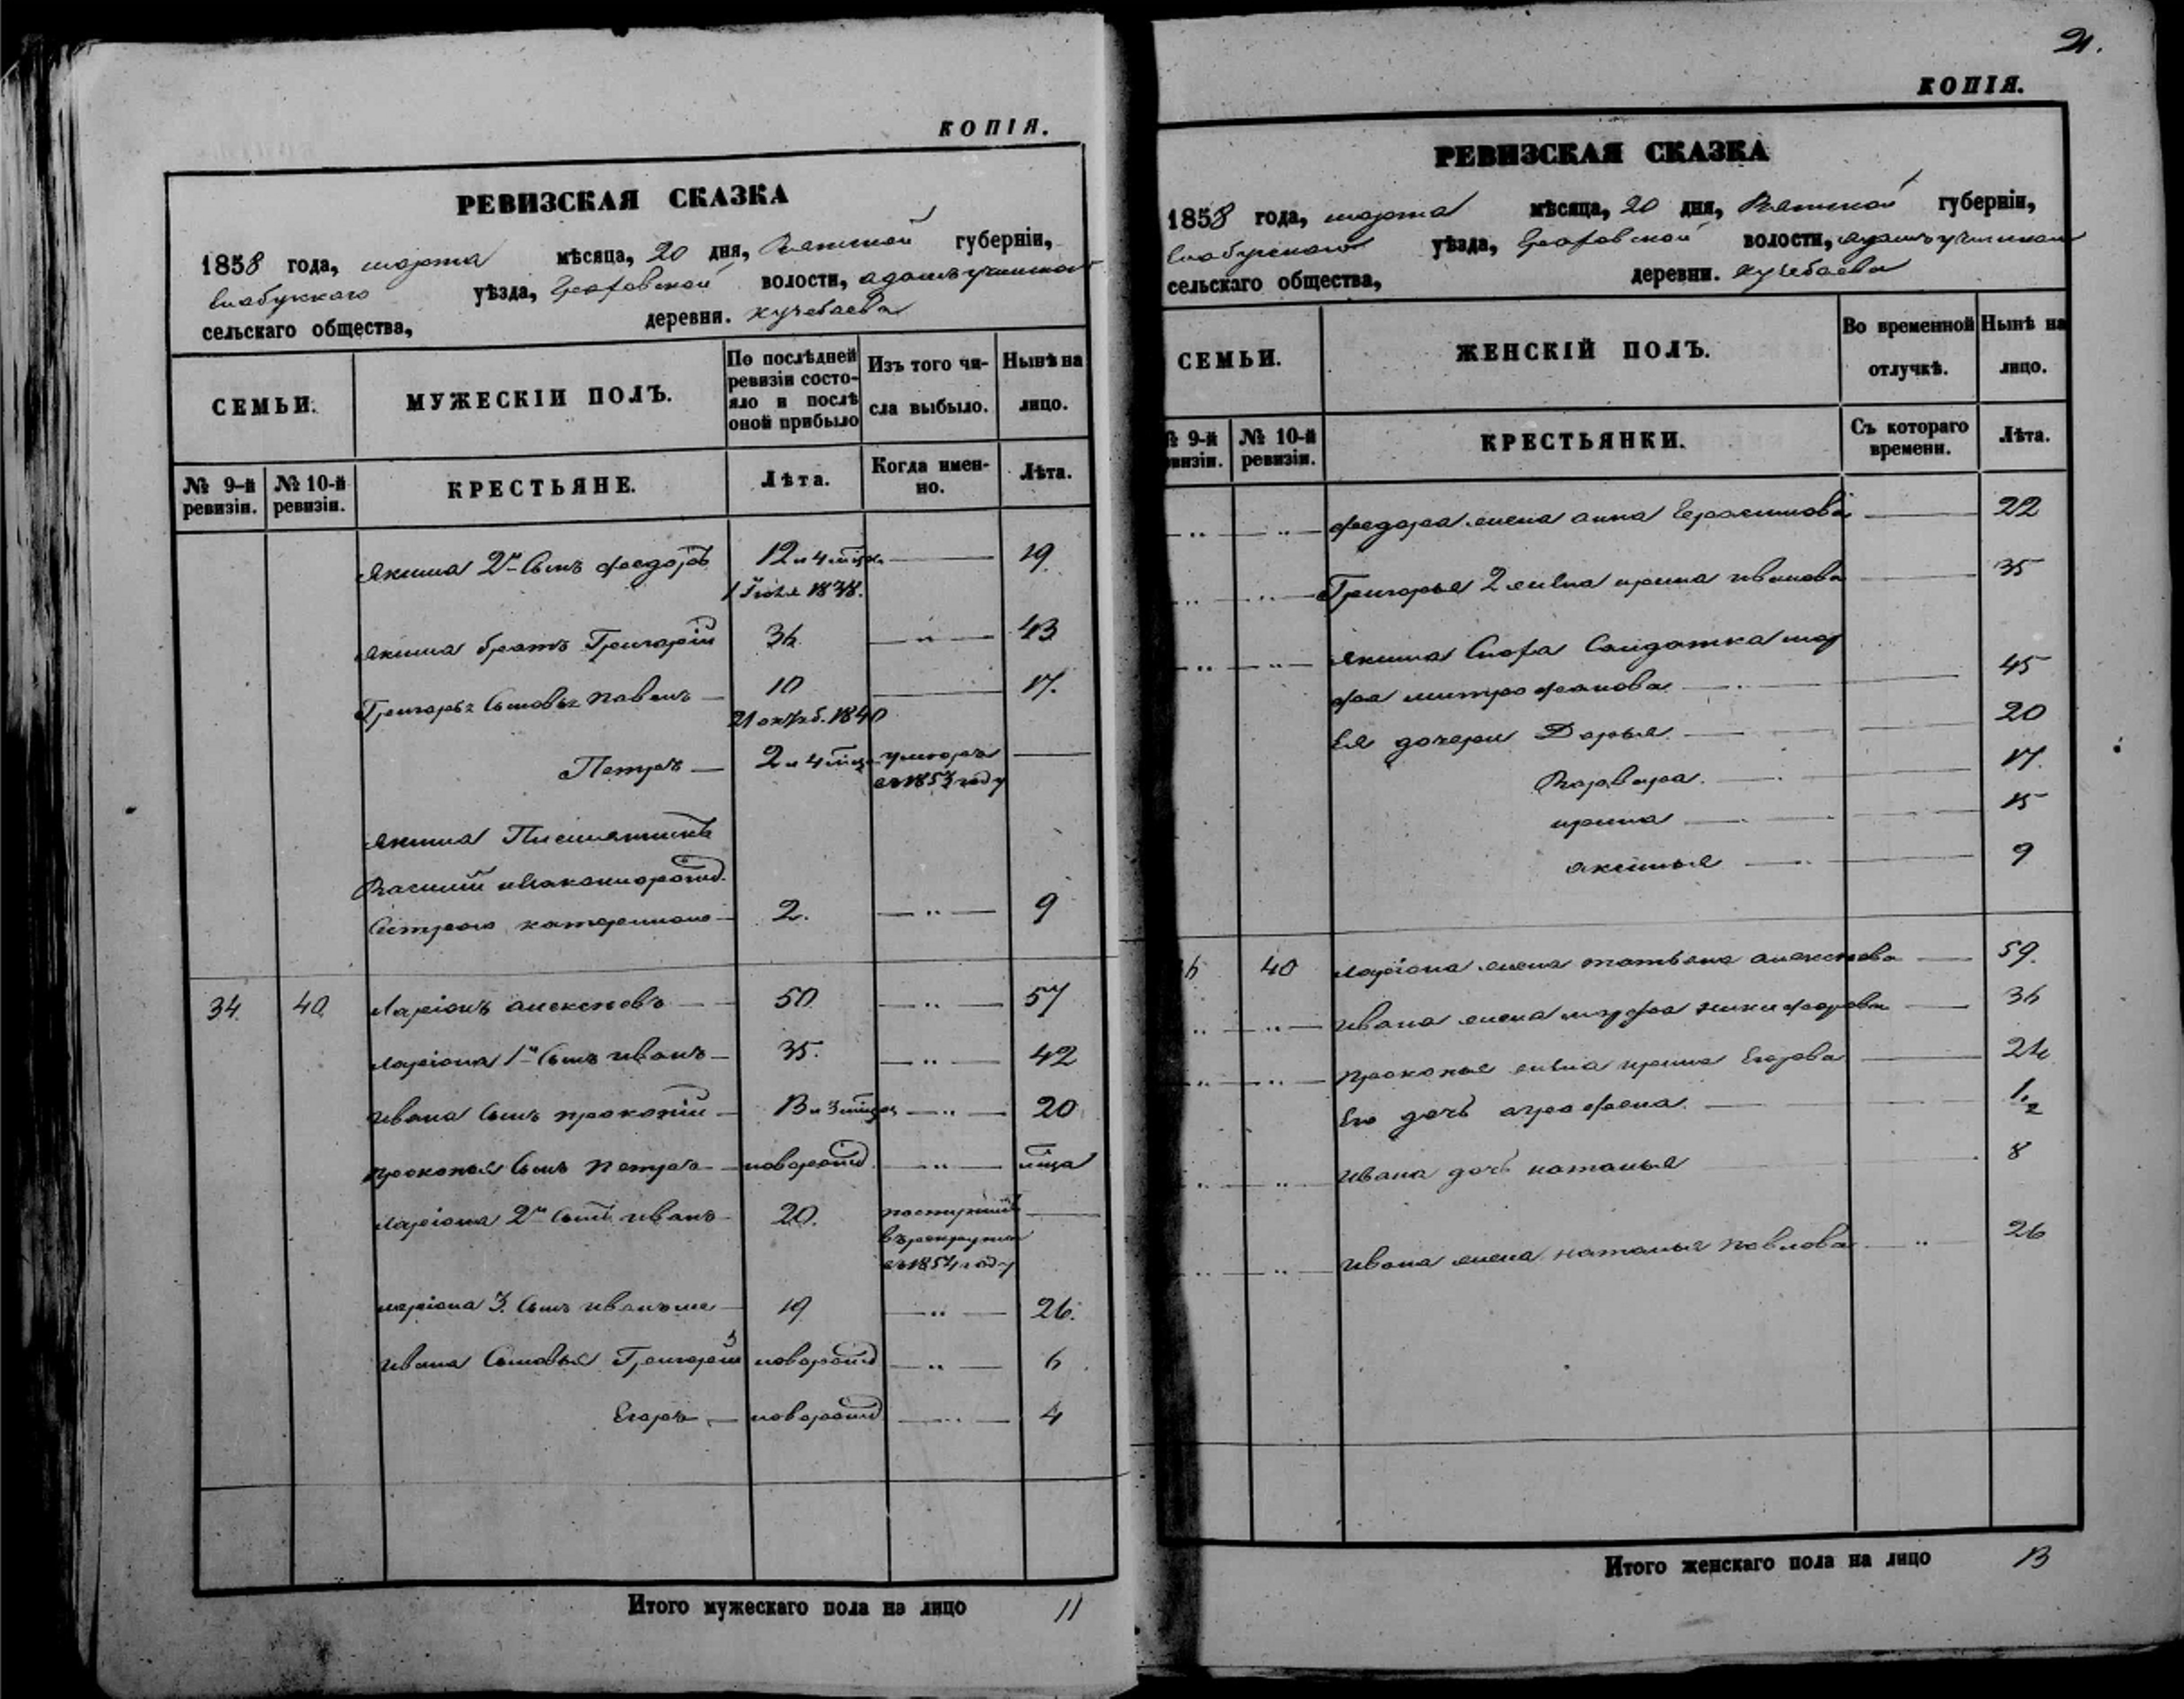 КОПІЯ.
РЕВИЗСКАЯ СКАЗКА
1858 года, марта мѣсяца, 20 дня, Вятской губерніи,
Елабужскаго уѣзда, Граховской волости,
сельскаго общества, деревни. Кучебаева
СЕМЬИ.
МУЖЕСКІЙ ПОЛЪ.
По послѣдней ревизіи состояло и послѣ оной прибыло
Изъ того числа выбыло.
Нынѣ на лицо.
№ 9-й ревизіи.
№ 10-й ревизіи.
КРЕСТЬЯНЕ.
Лѣта.
Когда именно.
Лѣта.
Якима 2й Сынъ Федоръ 12 и 4 мѣца 19.
1838.
Якима братъ Григорій 36 " 43
Григорья Сыновья Павелъ 10 17.
21 октяб. 1840
Петръ 2 и 4 мѣца умеръ
въ 1853 году
Якима
Василій
2. " 9
34. 40. Ларіонъ Алексѣевъ 50. " 57
Ларіона 1й Сынъ Иванъ 35. " 42
Ивана Сынъ Прокопій 13 и 3 мѣсяц " 20
Прокопья Сынъ Петръ новорожд. " мѣца
Ларіона 2й Сынъ Иванъ 20. поступилъ
въ рекруты
въ 1854 году
Ларіона 3. Сынъ Иванъ же 19 " 26.
Ивана Сыновья Григорій новорожд " 6
Егоръ новорожд " 4
Итого мужескаго пола на лицо 11
21.
КОПІЯ.
РЕВИЗСКАЯ СКАЗКА
1858 года, марта мѣсяца, 20 дня, Вятской губерніи,
Елабужскаго уѣзда, Граховской волости,
сельскаго общества, деревни. Кучебаева
СЕМЬИ.
ЖЕНСКІЙ ПОЛЪ.
Во временной отлучкѣ.
Нынѣ на лицо.
№ 9-й ревизіи.
№ 10-й ревизіи.
КРЕСТЬЯНКИ.
Съ котораго времени.
Лѣта.
" " Федора жена Анна Герасимова 22
" " Григорья 2 жена Ирина Иванова 35
" " Якима Сноха Солдатка Мар
фа Митрофанова 45
Ея дочери Дарья 20
Варвара. 17.
Ирина 15
Аксинья 9
40 Ларіона жена Татьяна Алексѣева 59.
" " Ивана жена Марфа Никифорова 36
" " Прокопья жена Ирина Егорова 21
Его дочь Аграфена. 1/2
" " Ивана дочь Наталья 8
" " Ивана жена Наталья Павлова " 26
Итого женскаго пола на лицо 13